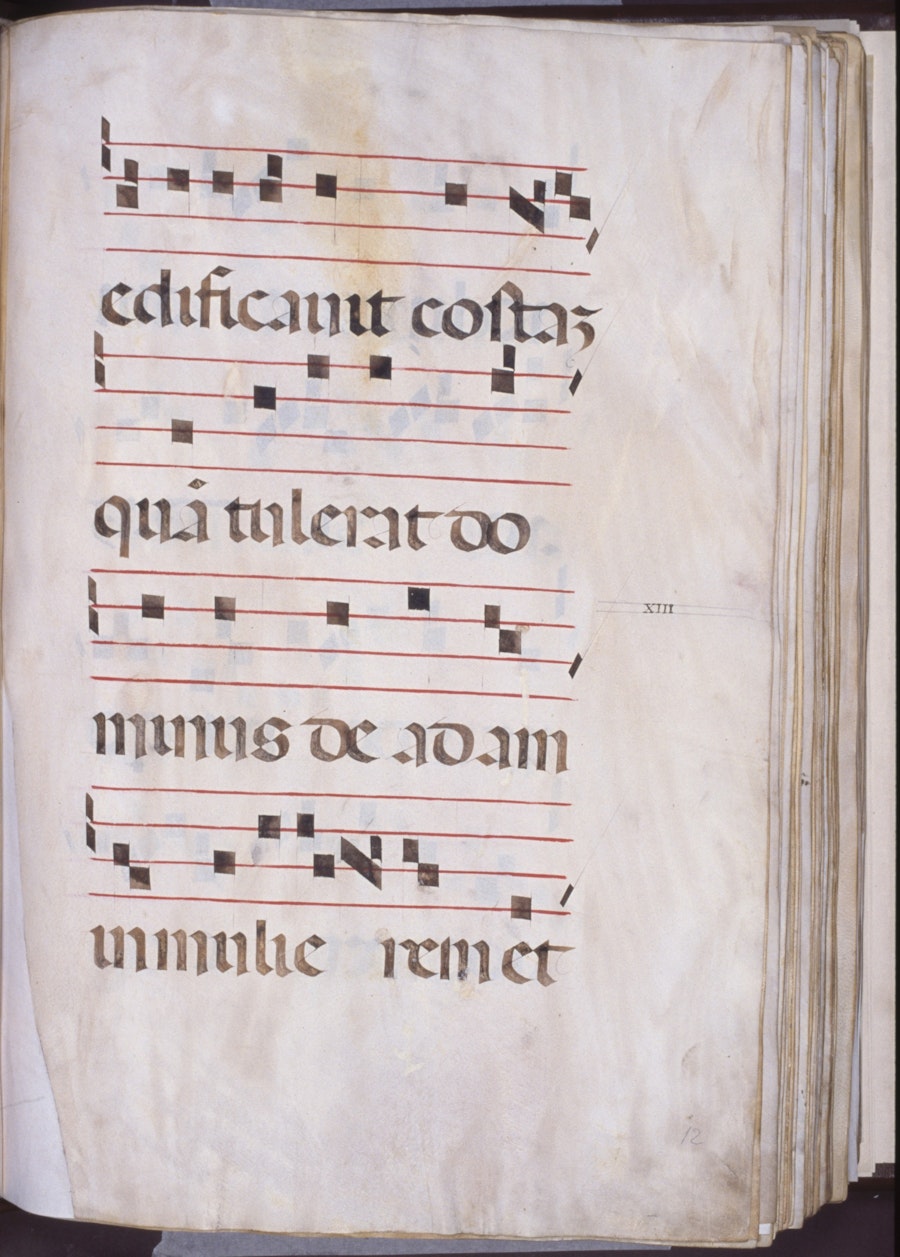 edificauit costaꝫ
quā tulerat do
minus de adam
XIII
in mulie rem et
12